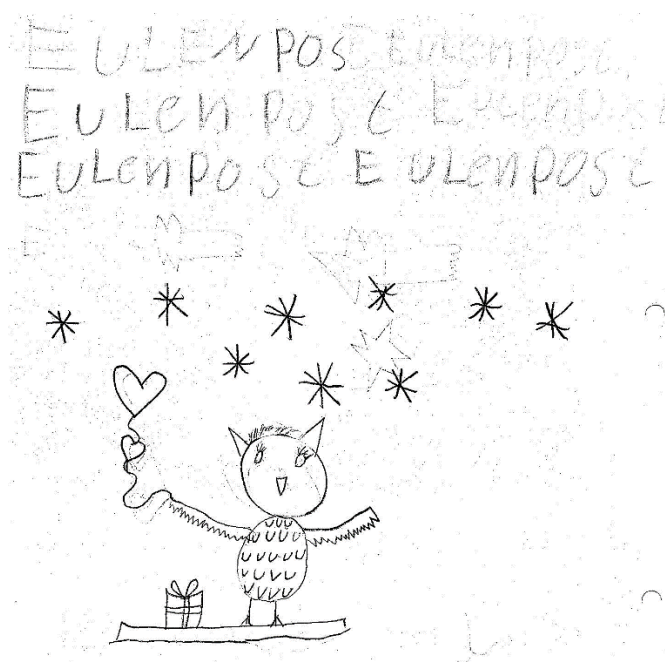 EULENPOS Eulenpost
EULenPost Eulenpost
EULenPost EULenPOSt